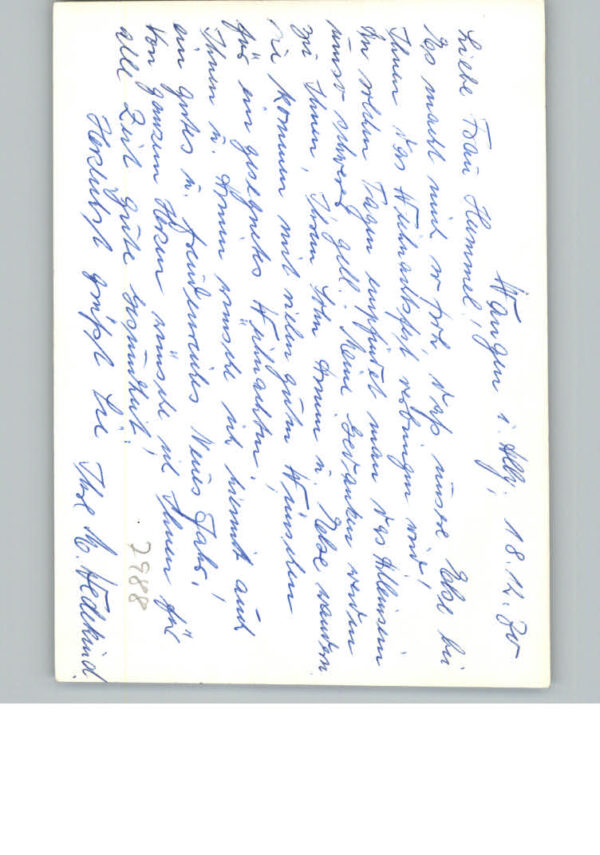 Wangen i. Allg., 18.12.70
Liebe Frau Hummel!
Es macht mich so froh, daß unsere Else bei
Ihnen das Weihnachtsfest verbringen wird!
An solchen Tagen empfindet man das Alleinsein
umso schwerer, gell. Meine Gedanken werden
zu Ihnen, Ihrem Sohn Armin u. Else wandern
sie kommen mit vielen guten Wünschen
für ein gesegnetes Weihnachten.
Ihnen u. Armin wünsche ich hiermit auch
ein gutes u. freudenreiches Neues Jahr!
Von ganzem Herzen wünsche ich Ihnen für
alle Zeit gute Gesundheit!
Herzlichst grüßt Sie Ihre M. Wedekind.
7988